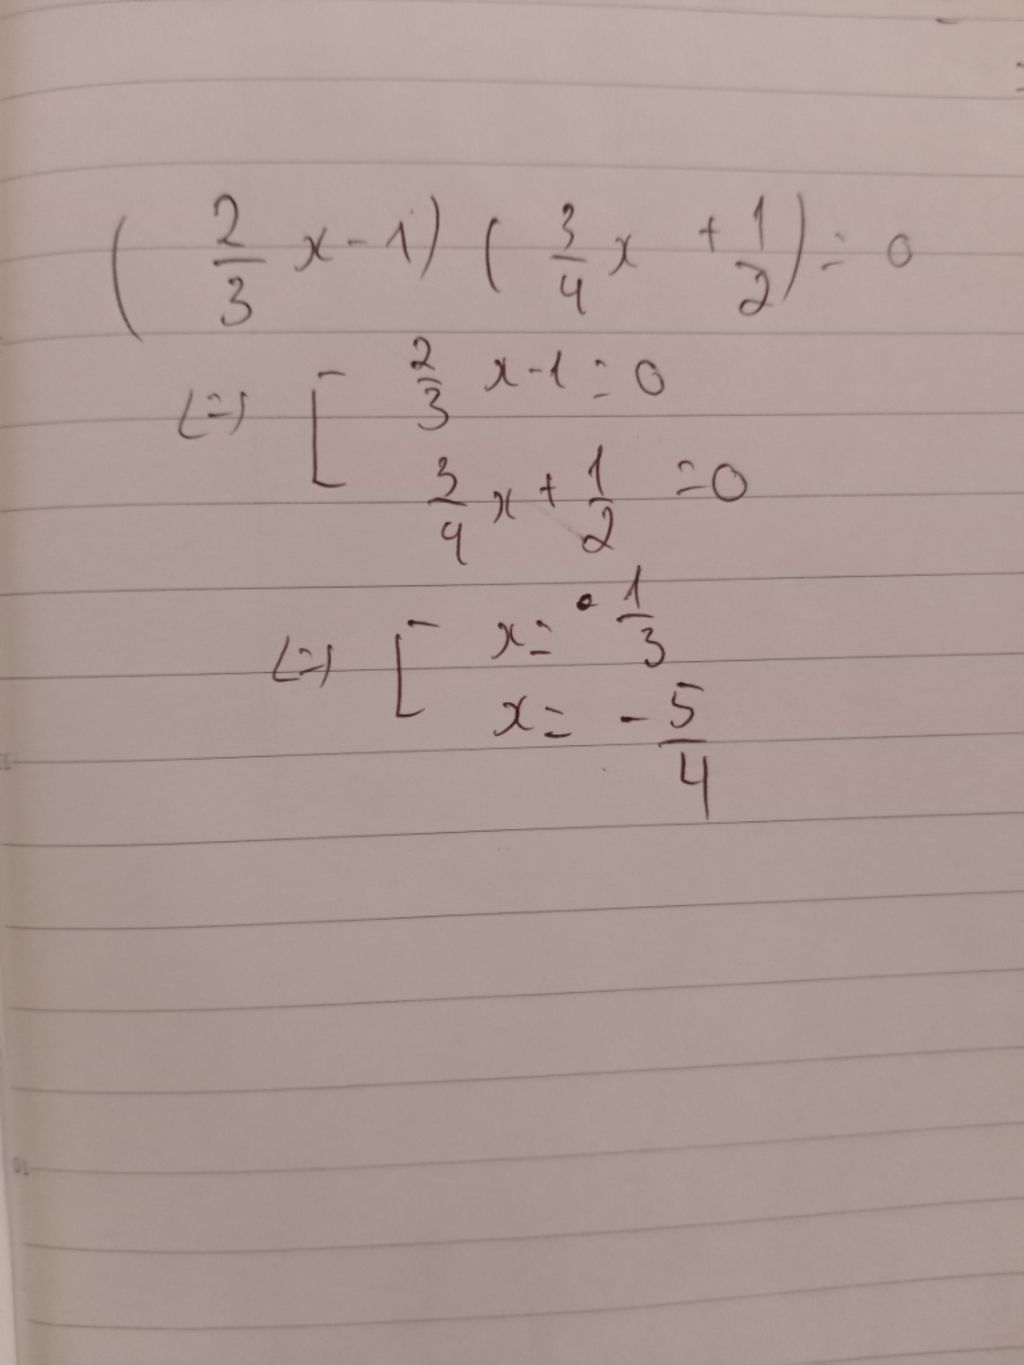 ( 2/3 x - 1 ) ( 3/4 x + 1/2 ) = 0
(=) [ 2/3 x - 1 = 0
3/4 x + 1/2 = 0
(=) [ x = 1/3
x = - 5/4